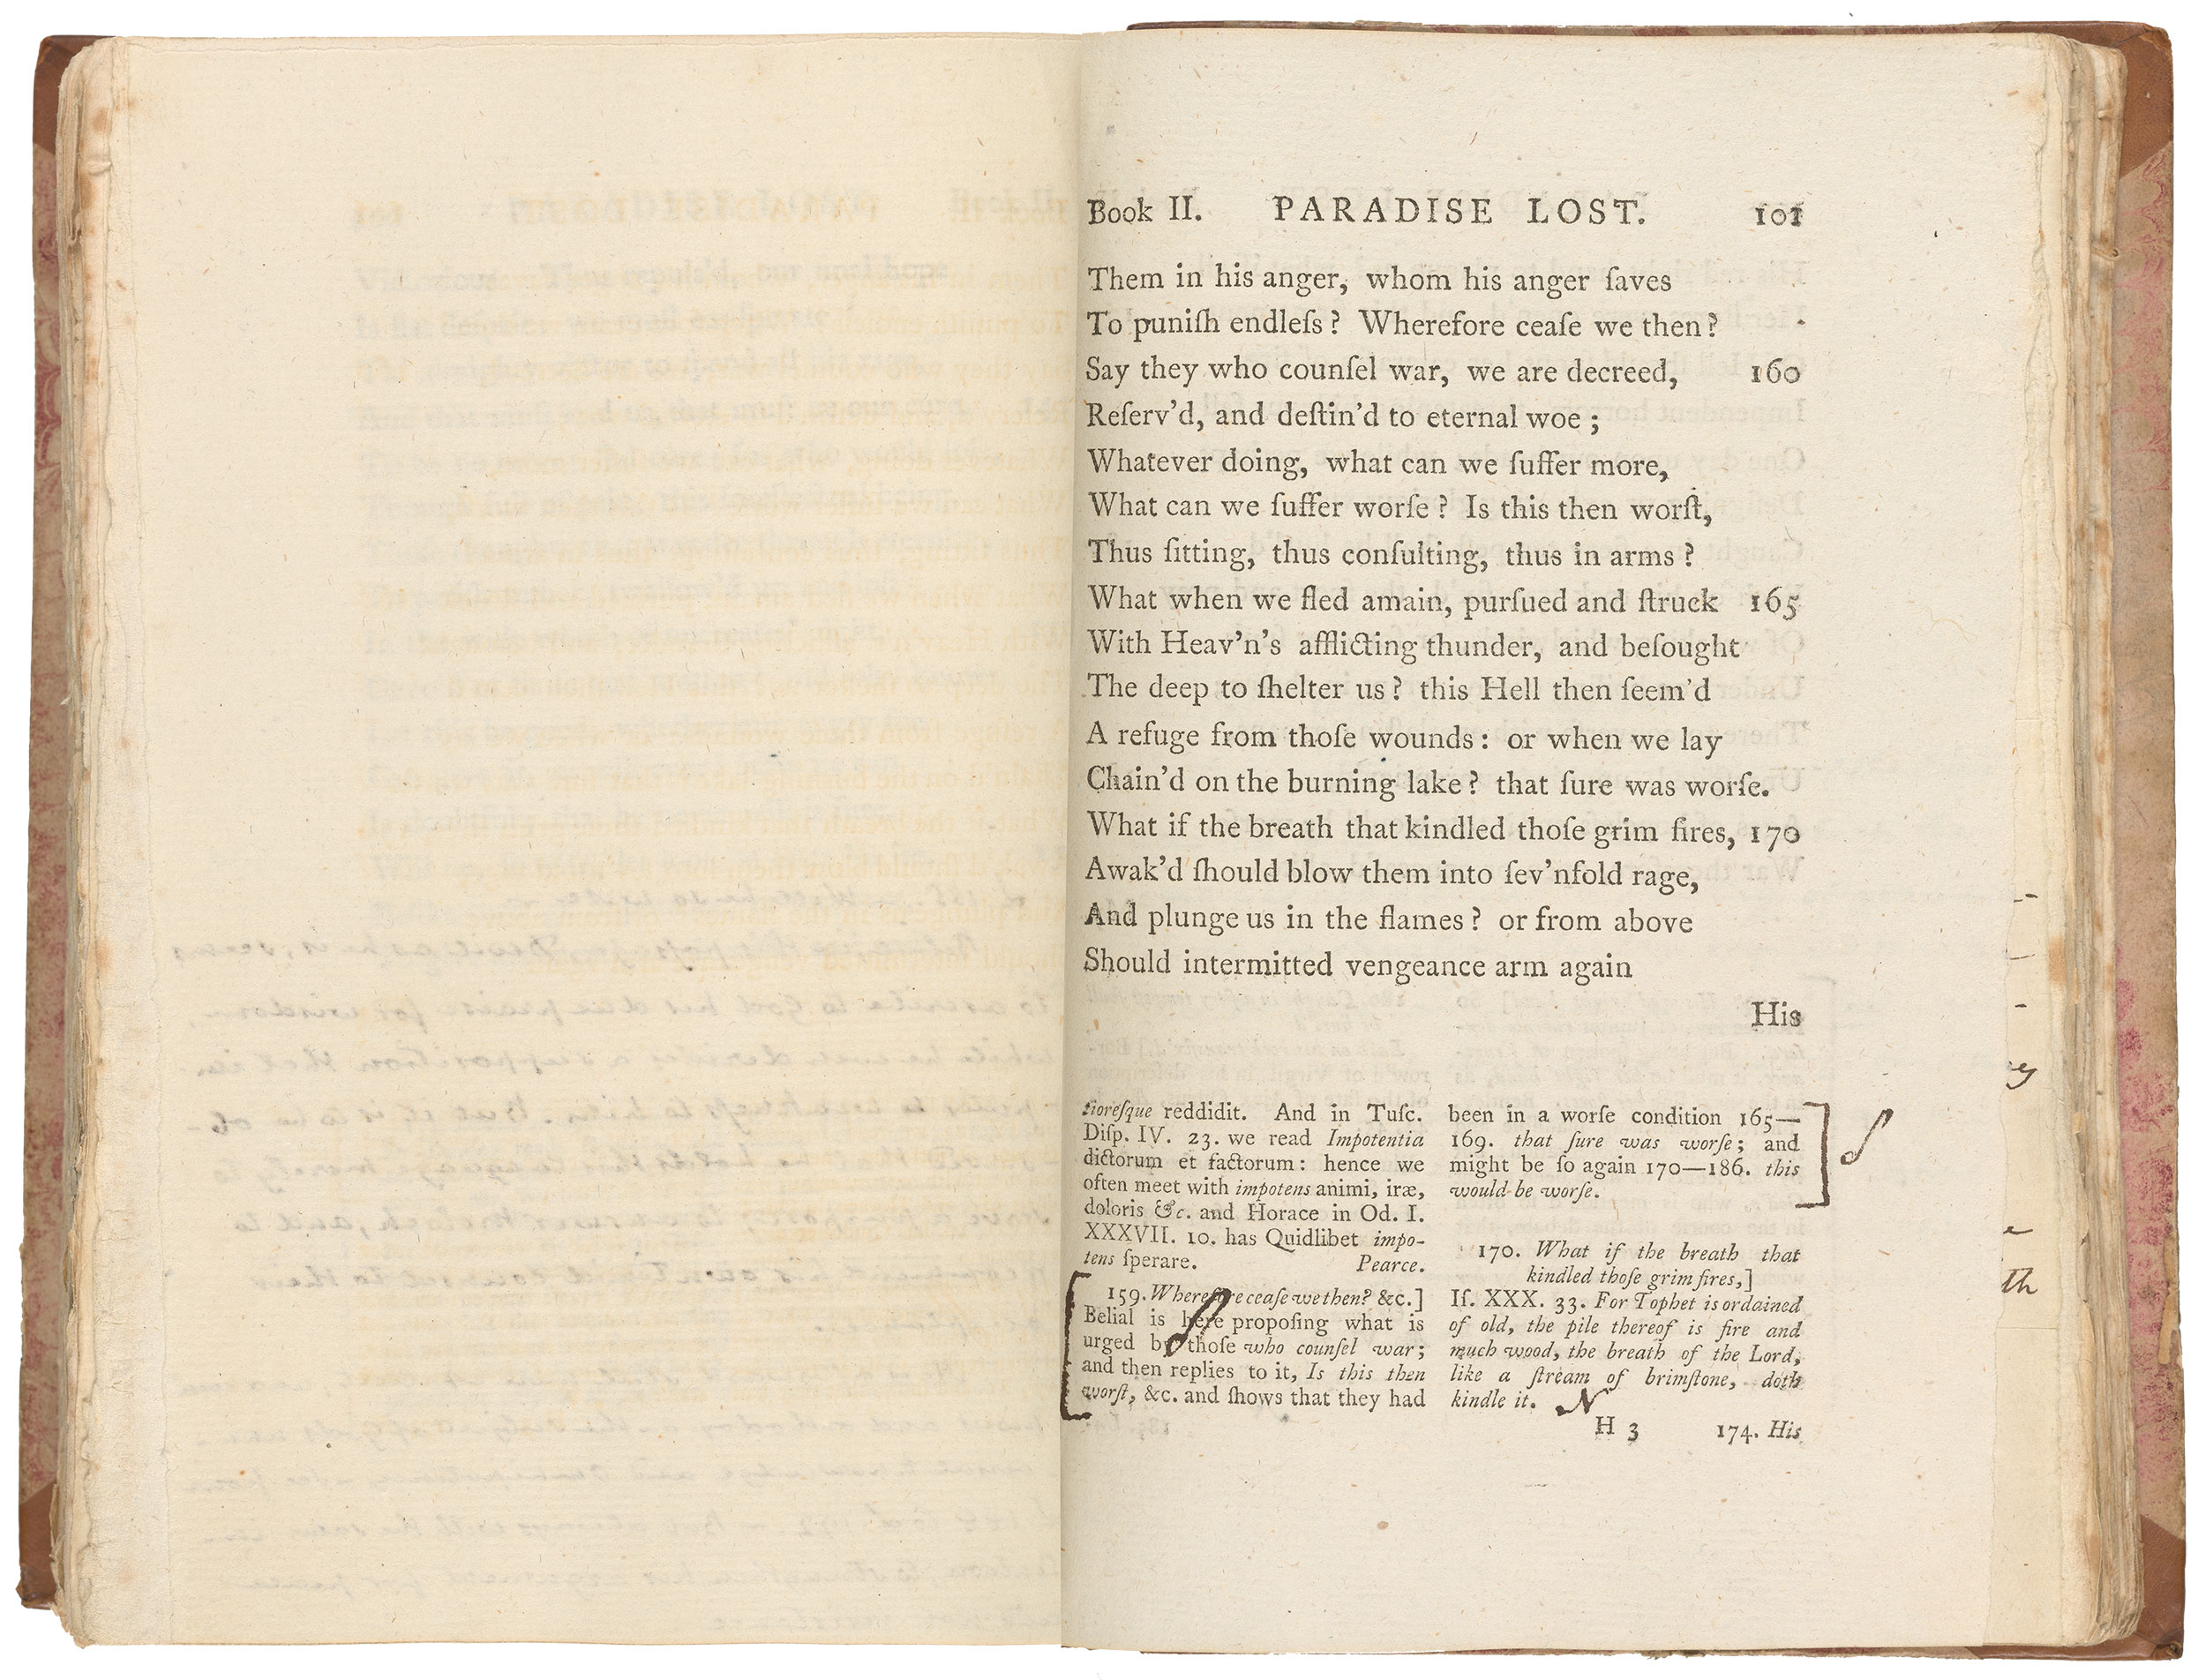 Book II. PARADISE LOST. 101
Them in his anger, whom his anger ſaves
To puniſh endleſs? Wherefore ceaſe we then?
Say they who counſel war, we are decreed, 160
Reſerv'd, and deſtin'd to eternal woe;
Whatever doing, what can we ſuffer more,
What can we ſuffer worſe? Is this then worſt,
Thus ſitting, thus conſulting, thus in arms?
What when we fled amain, purſued and ſtruck 165
With Heav'n's afflicting thunder, and beſought
The deep to ſhelter us? this Hell then ſeem'd
A refuge from thoſe wounds: or when we lay
Chain'd on the burning lake? that ſure was worſe.
What if the breath that kindled thoſe grim fires, 170
Awak'd ſhould blow them into ſev'nfold rage,
And plunge us in the flames? or from above
Should intermitted vengeance arm again
His
tioreſque reddidit. And in Tuſc.
Diſp. IV. 23. we read Impotentia
dictorum et factorum: hence we
often meet with impotens animi, iræ,
doloris &c. and Horace in Od. I.
XXXVII. 10. has Quidlibet impo-
tens ſperare. Pearce.
159. Wherefore ceaſe we then? &c.]
Belial is here propoſing what is
urged by thoſe who counſel war;
and then replies to it, Is this then
worſt, &c. and ſhows that they had
been in a worſe condition 165—
169. that ſure was worſe; and
might be ſo again 170—186. this
would be worſe.
170. What if the breath that
kindled thoſe grim fires,]
Iſ. XXX. 33. For Tophet is ordained
of old, the pile thereof is fire and
much wood, the breath of the Lord,
like a ſtream of brimſtone, doth
kindle it. N
H 3 174. His